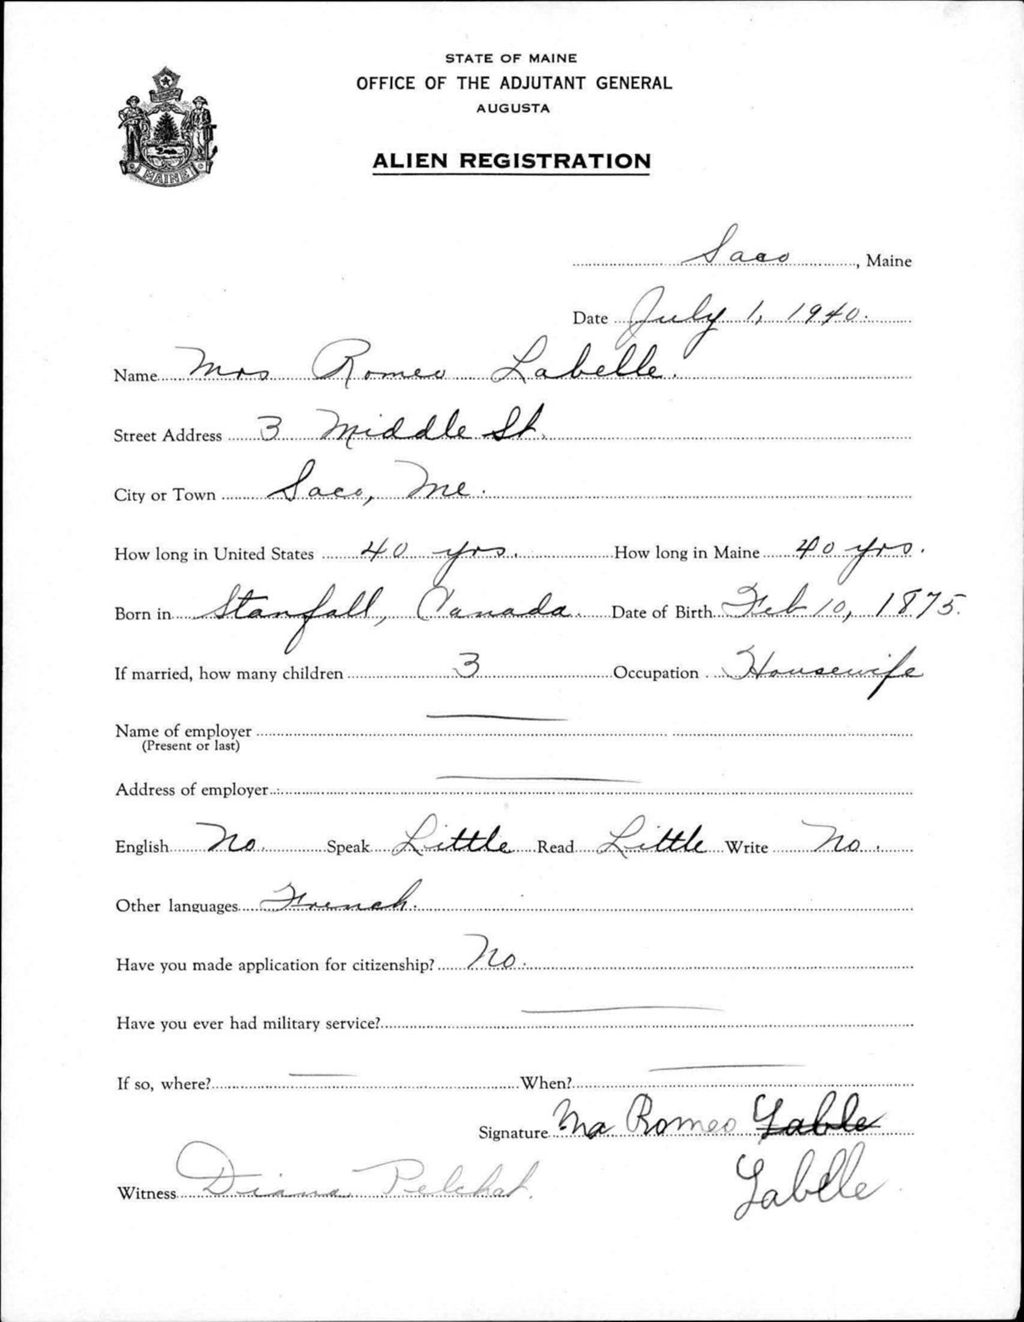 STATE OF MAINE
OFFICE OF THE ADJUTANT GENERAL
AUGUSTA
ALIEN REGISTRATION
MAINE
Saco, Maine
Date July 1, 1940.
Name Mrs Romeo Labelle.
Street Address 3 Middle St.
City or Town Saco, Me.
How long in United States 40 yrs. How long in Maine 40 yrs.
Born in Stanfall, Canada. Date of Birth Feb 10, 1875.
If married, how many children 3 Occupation Housewife
Name of employer
(Present or last)
Address of employer
English No. Speak Little Read Little Write No.
Other languages French.
Have you made application for citizenship? No.
Have you ever had military service?
If so, where? When?
Signature Romeo Lable
Witness Diana Pelchat. Labelle